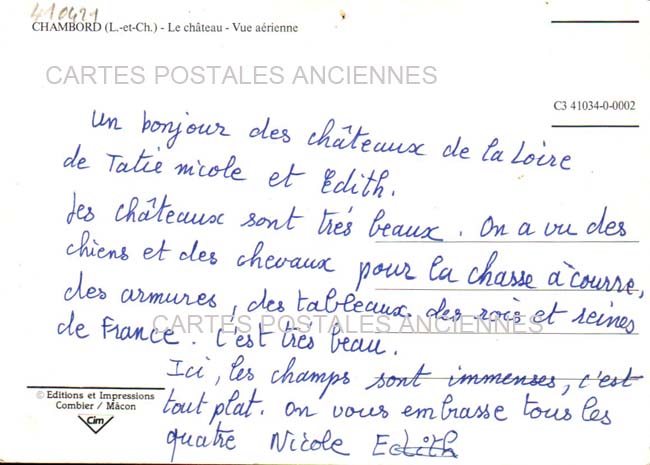 410421
CHAMBORD (L.-et-Ch.) - Le château - Vue aérienne
CARTES POSTALES ANCIENNES
C3 41034-0-0002
Un bonjour des châteaux de la Loire
de Tatie nicole et Edith.
Les châteaux sont très beaux. On a vu des
chiens et des chevaux pour la chasse à courre,
des armures, des tableaux des rois et reines
de France. C'est très beau.
CARTES POSTALES ANCIENNES
Ici, les champs sont immenses, c'est
tout plat. On vous embrasse tous les
quatre Nicole Edith
© Editions et Impressions
Combier / Mâcon
Cim